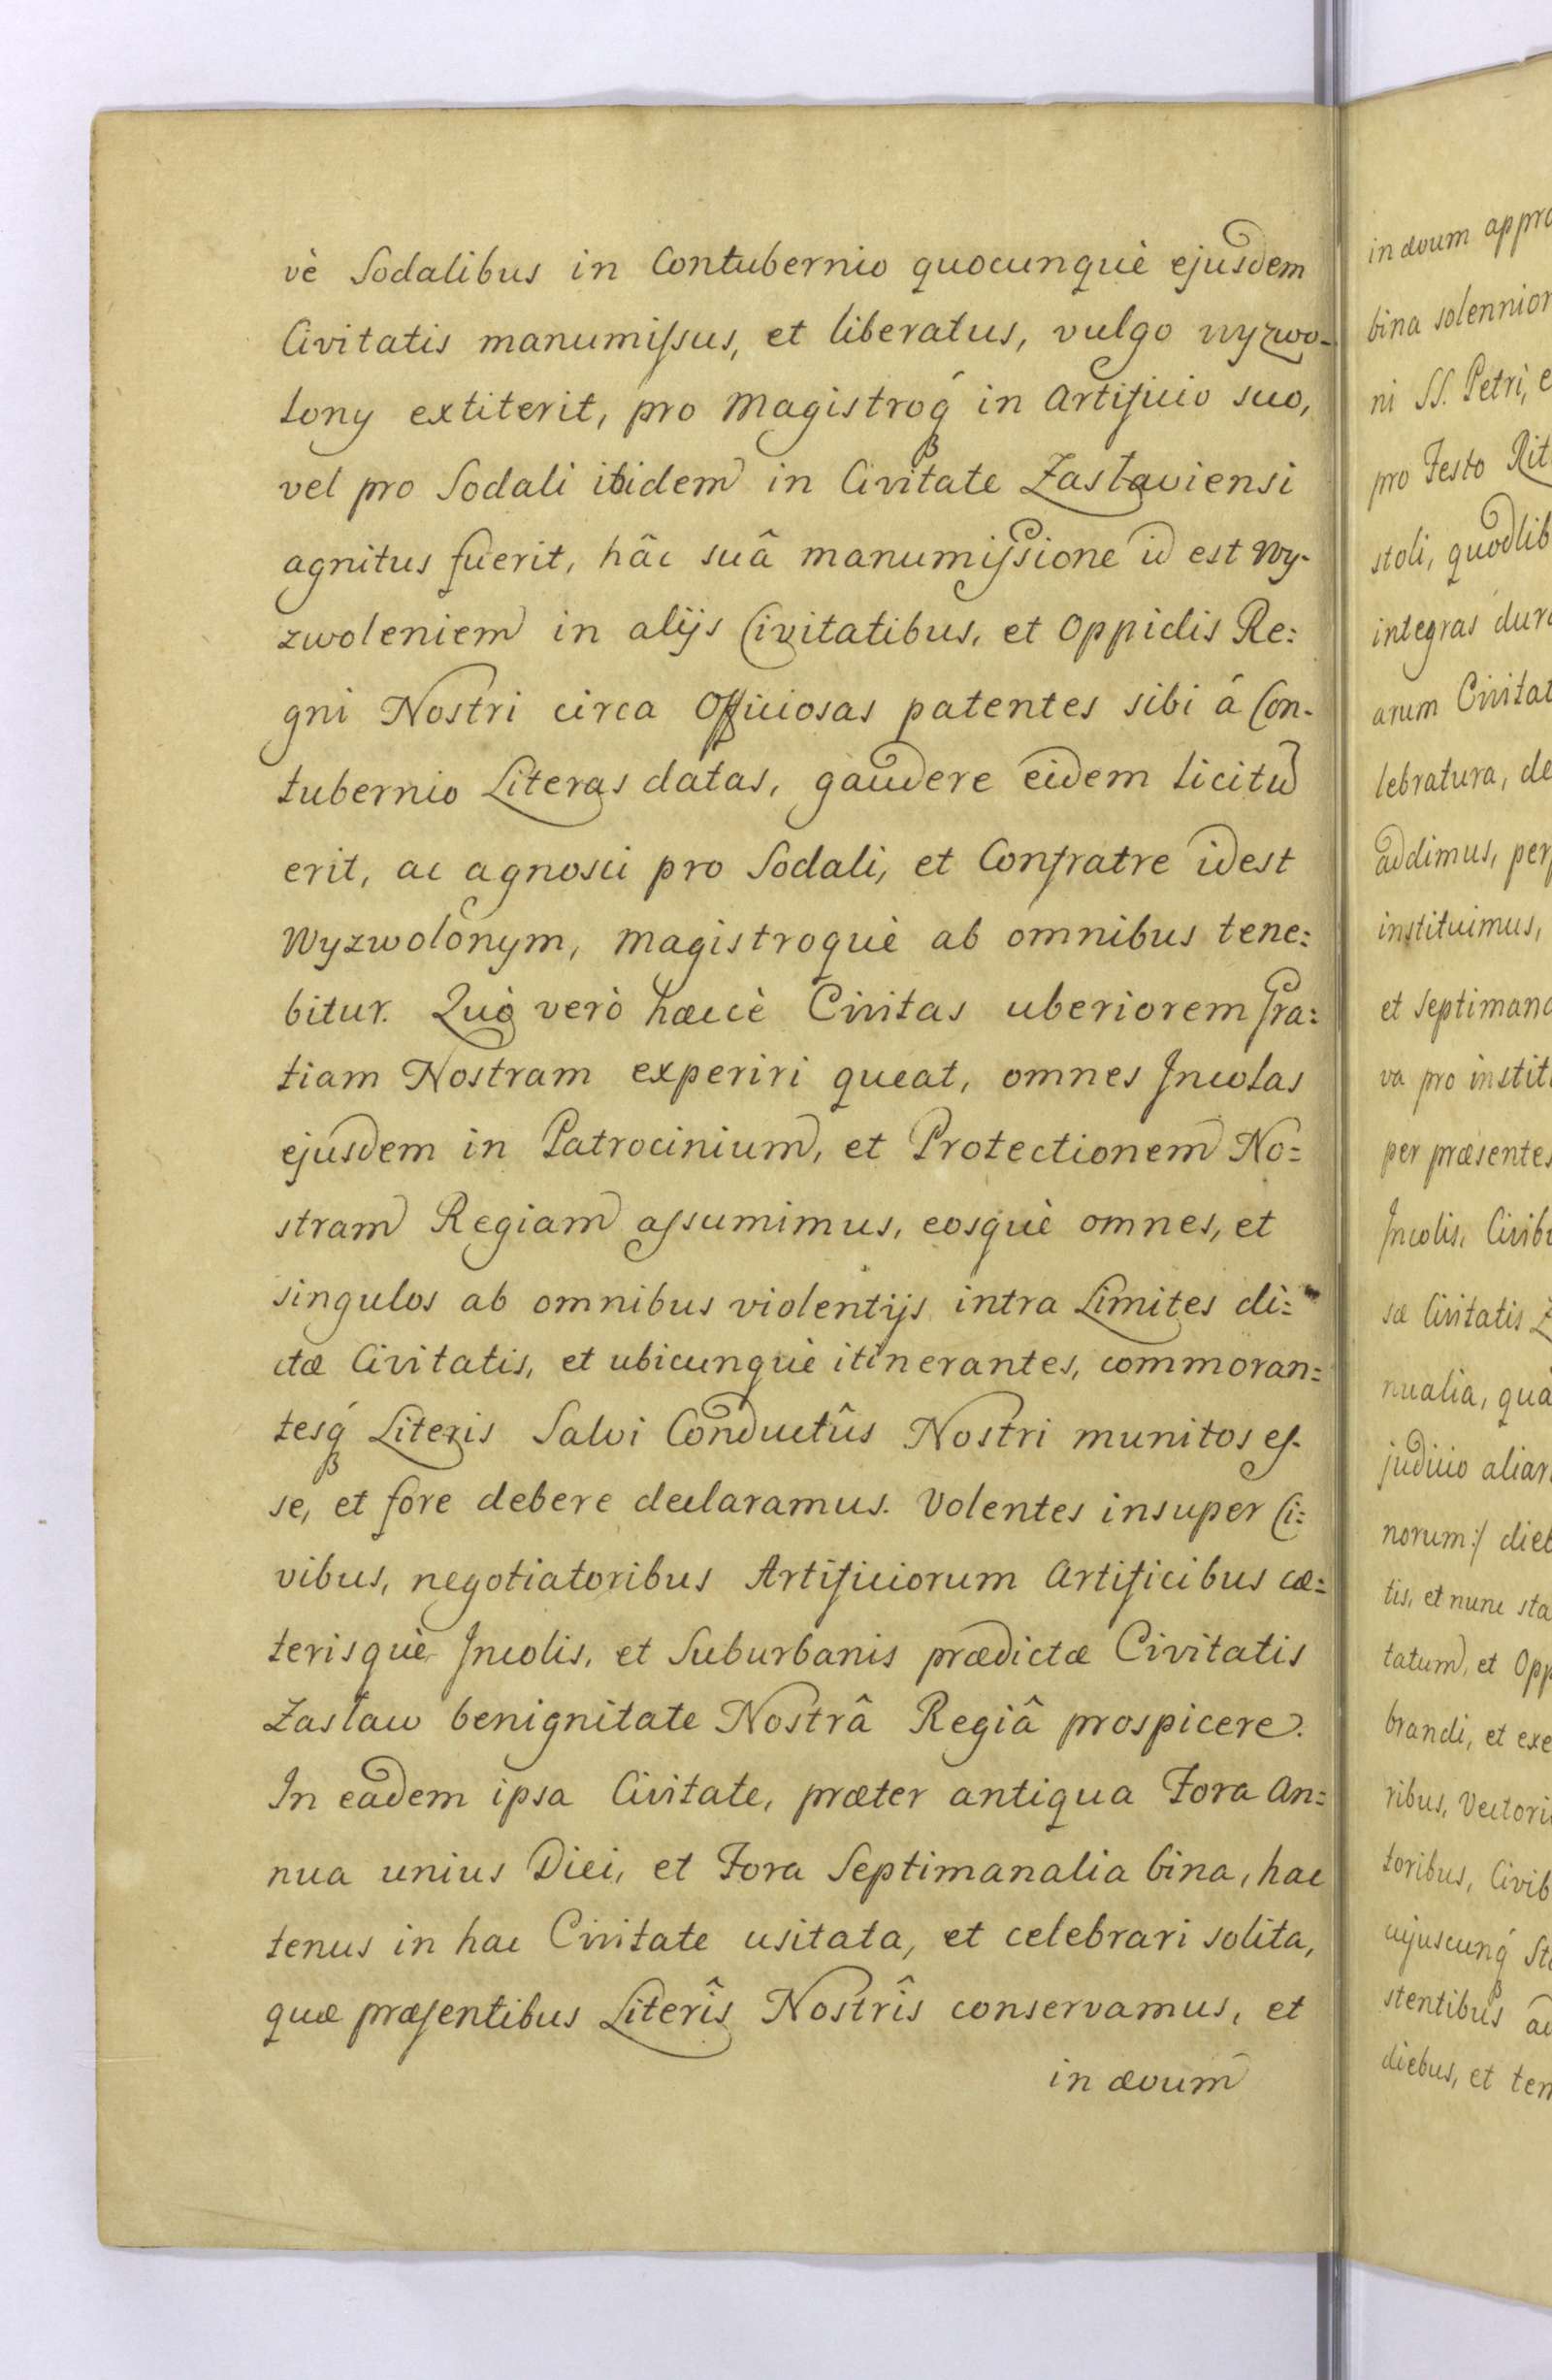 vè Sodalibus in Contubernio quocunquè ejusdem
Civitatis manumissus, et liberatus, vulgo wyzwo-
lony extiterit, pro Magistroq́ in Artificio suo,
vel pro Sodali ibidem in Civitate Zasłaviensi
agnitus fuerit, hâc suâ manumissione id est Wy-
zwoleniem in alijs Civitatibus, et Oppidis Re:
gni Nostri circa Officiosas patentes sibi á Con-
tubernio Literas datas, gaudere eidem licitū
erit, ac agnosci pro Sodali, et Confratre idest
Wyzwolonym, Magistroquè ab omnibus tene:
bitur. Quò verò hæccè Civitas uberiorem Gra:
tiam Nostram experiri queat, omnes Incolas
ejusdem in Patrocinium, et Protectionem No:
stram Regiam assumimus, eosquè omnes, et
singulos ab omnibus violentijs intra Limites di:
ctæ Civitatis, et ubicunquè itinerantes, commoran:
tesq́ Literis Salvi Conductûs Nostri munitos es-
se, et fore debere declaramus. Volentes insuper Ci:
vibus, negotiatoribus Artificiorum Artificibus cæ:
terisquè Incolis, et Suburbanis prædictæ Civitatis
Zasław benignitate Nostrâ Regiâ prospicere.
In eadem ipsa Civitate, præter antiqua Fora An:
nua unius Diei, et Fora Septimanalia bina, hac
tenus in hac Civitate usitata, et celebrari solita,
quæ præsentibus Literîs Nostrîs conservamus, et
in ævum
in ævum
bina
ni SS. Petri,
pro Festo
stoli,
integras
arum
lebratura,
addimus,
instituimus,
et
va pro
per
Incolis,
sæ Civitatis
nualia,
judicio
norum:/
tis, et nunc
tatum, et
brandi, et
ribus,
toribus,
cujuscunq́
stentibus
diebus, et